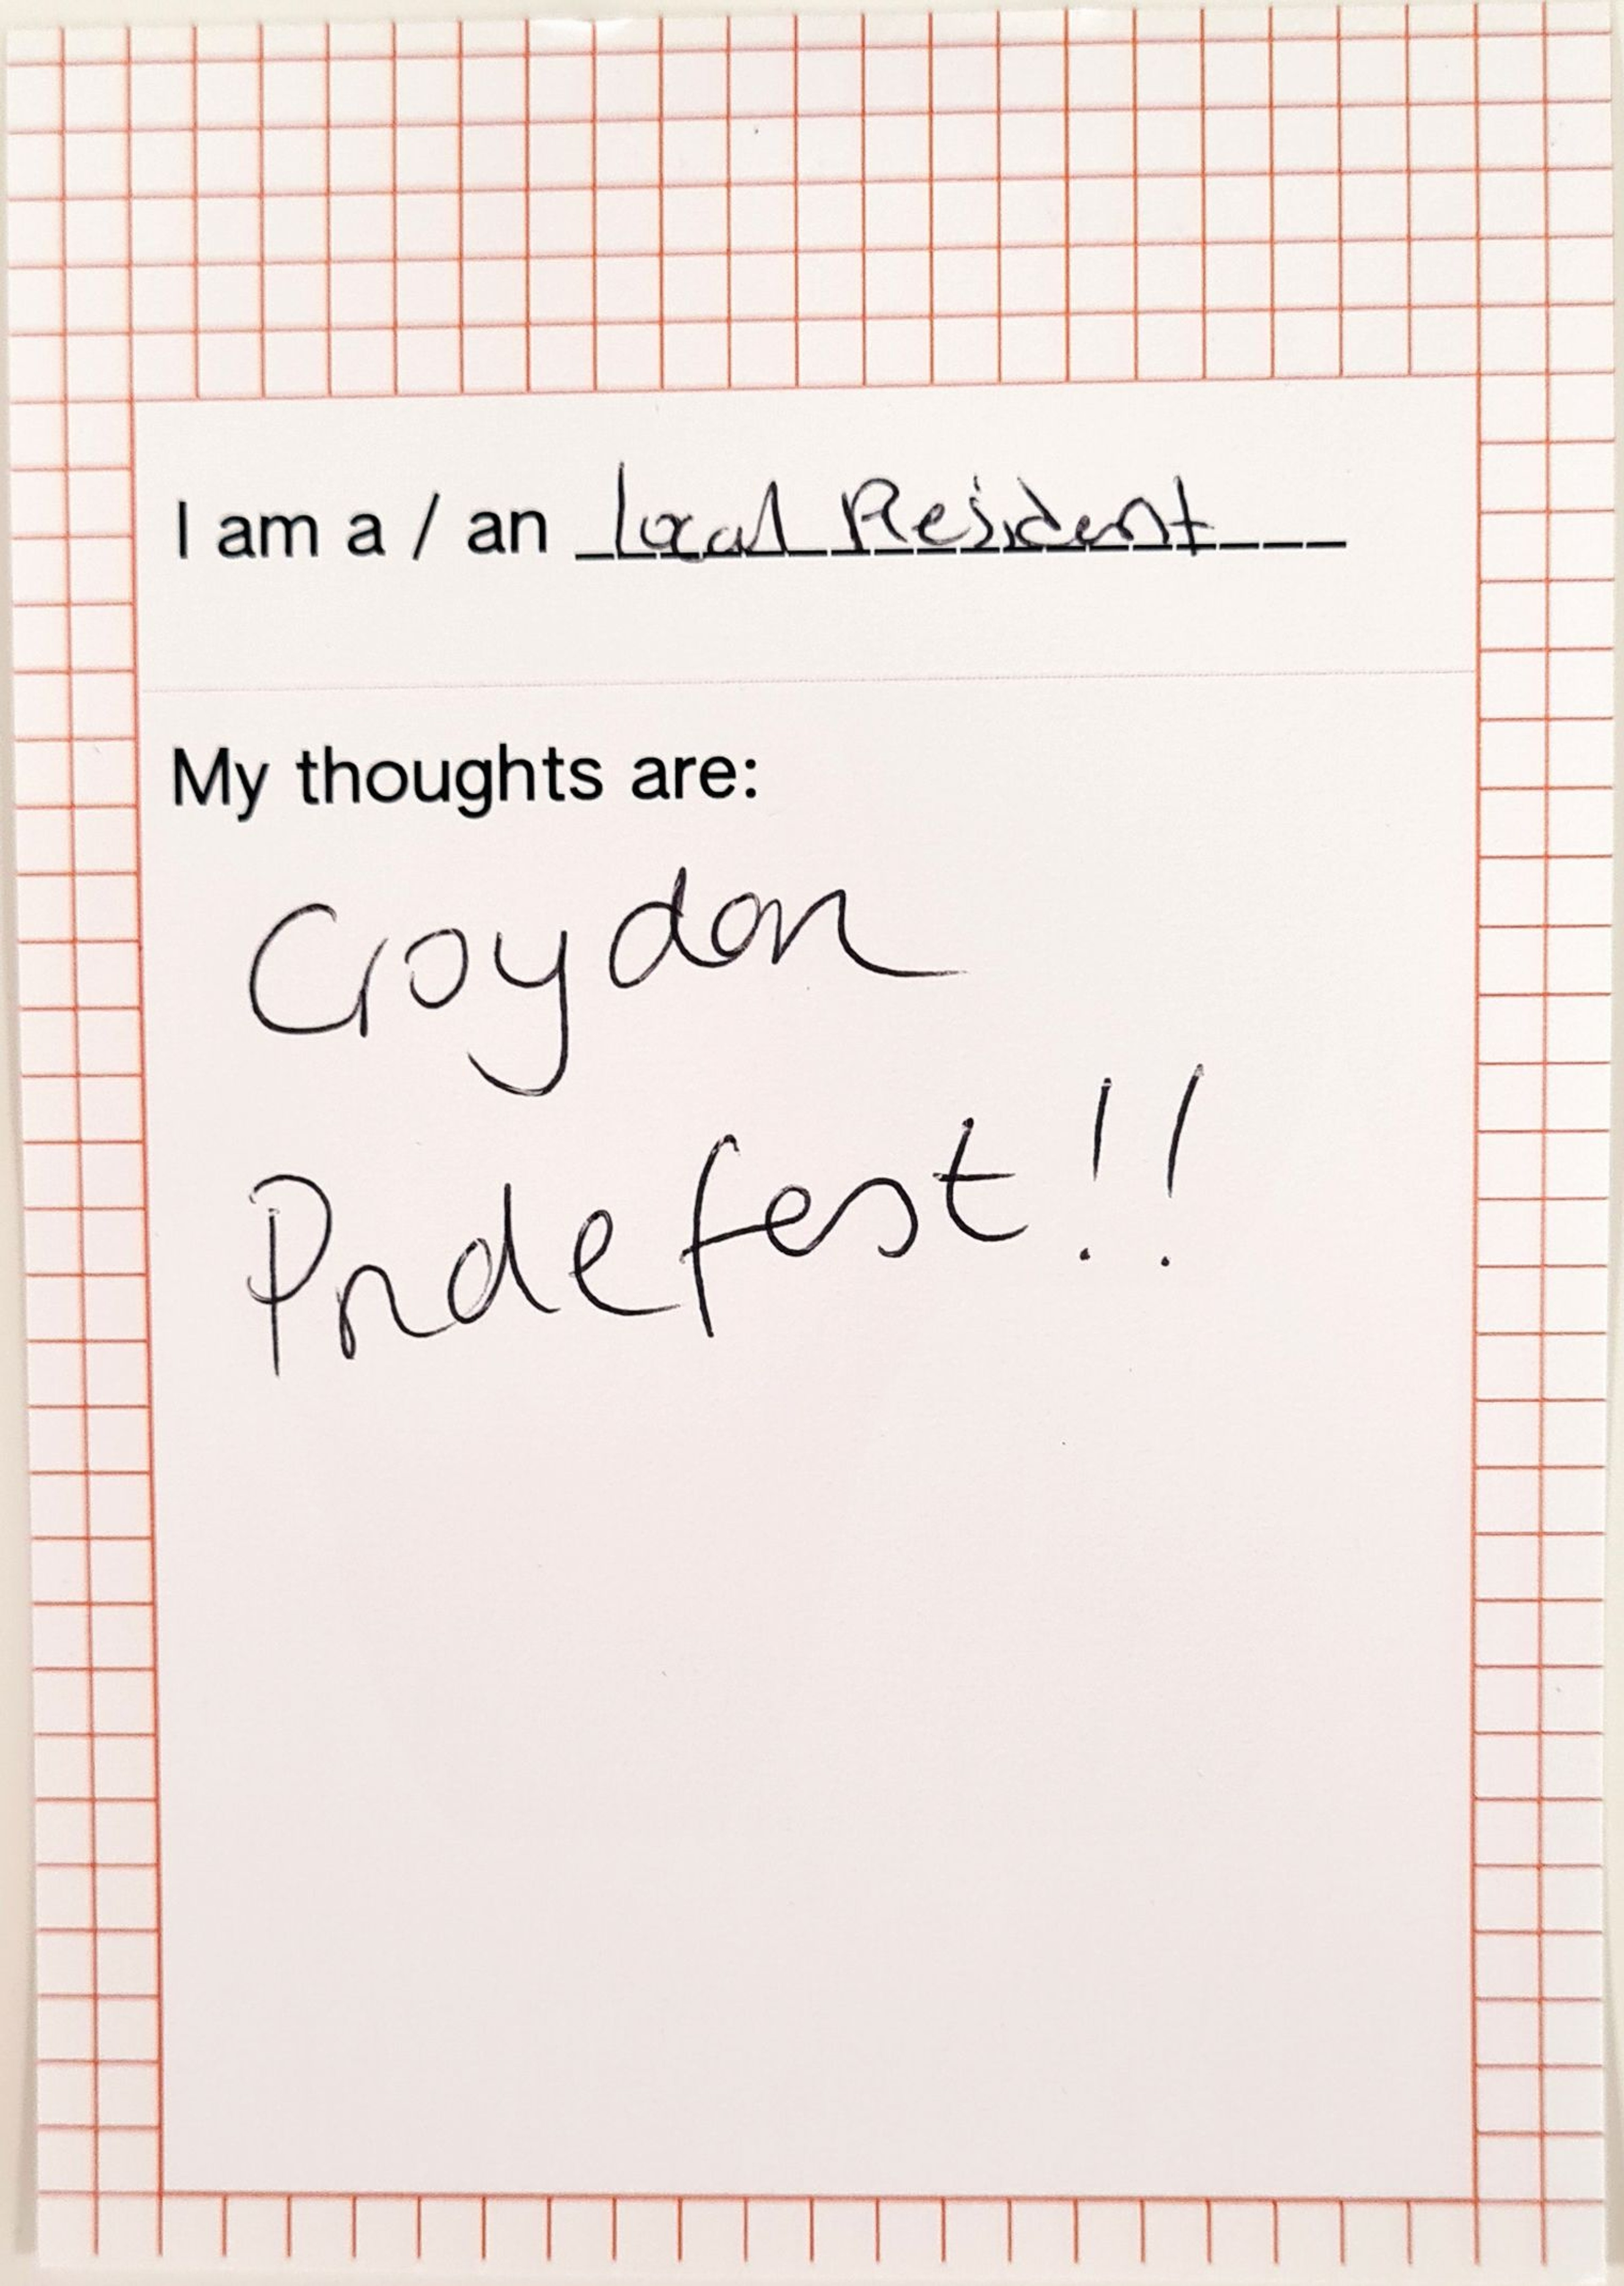 I am a / an Local Resident
My thoughts are:
Croydon
Pridefest!!